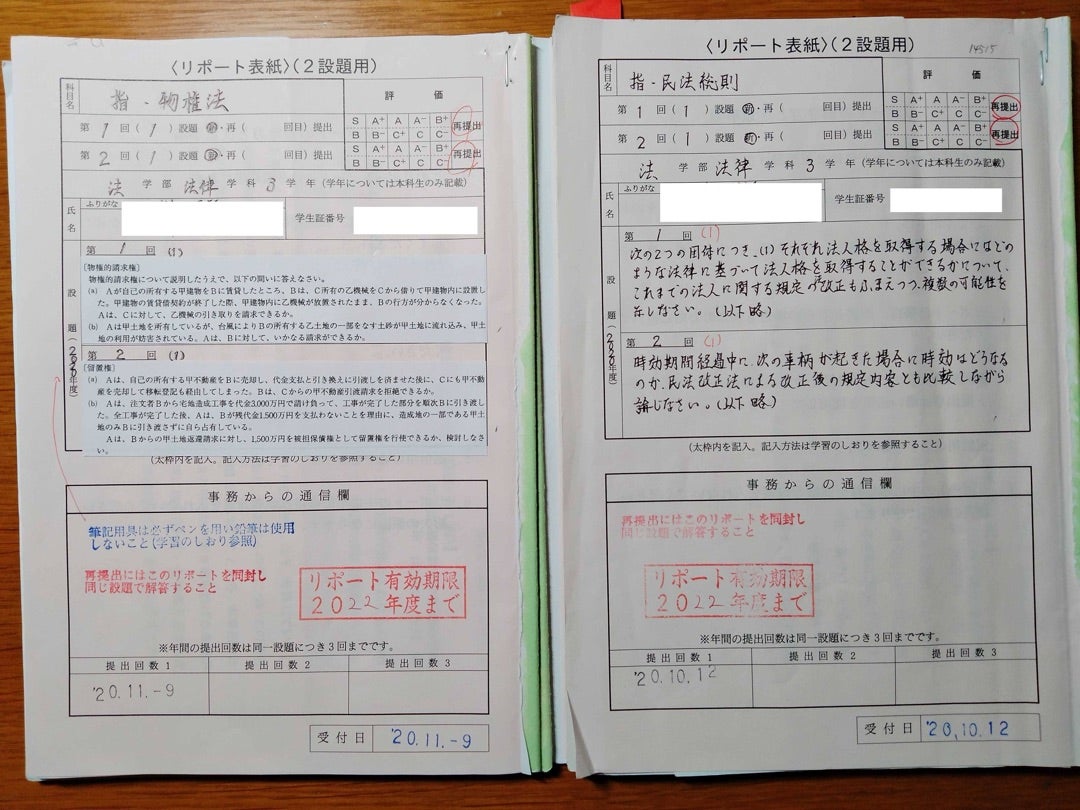 〈リポート表紙〉(2設題用)
科目名
指・物権法
評 価
第1回(1)設題 新・再( 回目)提出
S A⁺ A A⁻ B⁺ 再提出
B B⁻ C⁺ C C⁻
第2回(1)設題 新・再( 回目)提出
S A⁺ A A⁻ B⁺ 再提出
B B⁻ C⁺ C C⁻
法 学部 法律 学科 3 学年(学年については本科生のみ記載)
氏名
ふりがな
学生証番号
設題(2020年度)
第 1 回 (1)
[物権的請求権]
物権的請求権について説明したうえで、以下の問いに答えなさい。
(a) Aが自己の所有する甲建物をBに賃貸したところ、Bは、C所有の乙機械をCから借りて甲建物内に設置し
た。甲建物の賃貸借契約が終了した際、甲建物内に乙機械が放置されたまま、Bの行方が分からなくなった。
Aは、Cに対して、乙機械の引き取りを請求できるか。
(b) Aは甲土地を所有しているが、台風によりBの所有する乙土地の一部をなす土砂が甲土地に流れ込み、甲土
地の利用が妨害されている。Aは、Bに対して、いかなる請求ができるか。
第 2 回 (1)
[留置権]
(a) Aは、自己の所有する甲不動産をBに売却し、代金支払と引き換えに引渡しを済ませた後に、Cにも甲不動
産を売却して移転登記も経由してしまった。Bは、Cからの甲不動産引渡請求を拒絶できるか。
(b) Aは、注文者Bから宅地造成工事を代金3,000万円で請け負って、工事が完了した部分を順次Bに引き渡し
た。全工事が完了した後、Aは、Bが残代金1,500万円を支払わないことを理由に、造成地の一部である甲土
地のみBに引き渡さずに自ら占有している。
Aは、Bからの甲土地返還請求に対し、1,500万円を被担保債権として留置権を行使できるか、検討しなさ
い。
(太枠内を記入。記入方法は学習のしおりを参照すること)
事務からの通信欄
筆記用具は必ずペンを用い鉛筆は使用
しないこと(学習のしおり参照)
再提出にはこのリポートを同封し
同じ設題で解答すること
リポート有効期限
2022年度まで
※年間の提出回数は同一設題につき3回までです。
提出回数1 提出回数2 提出回数3
'20.11.-9
受付日 '20.11.-9
〈リポート表紙〉(2設題用)
14515
科目名
指・民法総則
評 価
第1回(1)設題 新・再( 回目)提出
S A⁺ A A⁻ B⁺ 再提出
B B⁻ C⁺ C C⁻
第2回(1)設題 新・再( 回目)提出
S A⁺ A A⁻ B⁺ 再提出
B B⁻ C⁺ C C⁻
法 学部 法律 学科 3 学年(学年については本科生のみ記載)
氏名
ふりがな
学生証番号
設題(2020年度)
第 1 回 (1)
次の2つの団体につき、(1)それぞれ法人格を取得する場合にはどの
ような法律に基づいて法人格を取得することができるかについて、
これまでの法人に関する規定の改正もふまえつつ、複数の可能性を
示しなさい。(以下略)
第 2 回 (1)
時効期間経過中に、次の事柄が起きた場合に時効はどうなる
のか、民法改正法による改正後の規定内容とも比較しながら
論じなさい。(以下略)
(太枠内を記入。記入方法は学習のしおりを参照すること)
事務からの通信欄
再提出にはこのリポートを同封し
同じ設題で解答すること
リポート有効期限
2022年度まで
※年間の提出回数は同一設題につき3回までです。
提出回数1 提出回数2 提出回数3
'20.10.12
受付日 '20.10.12